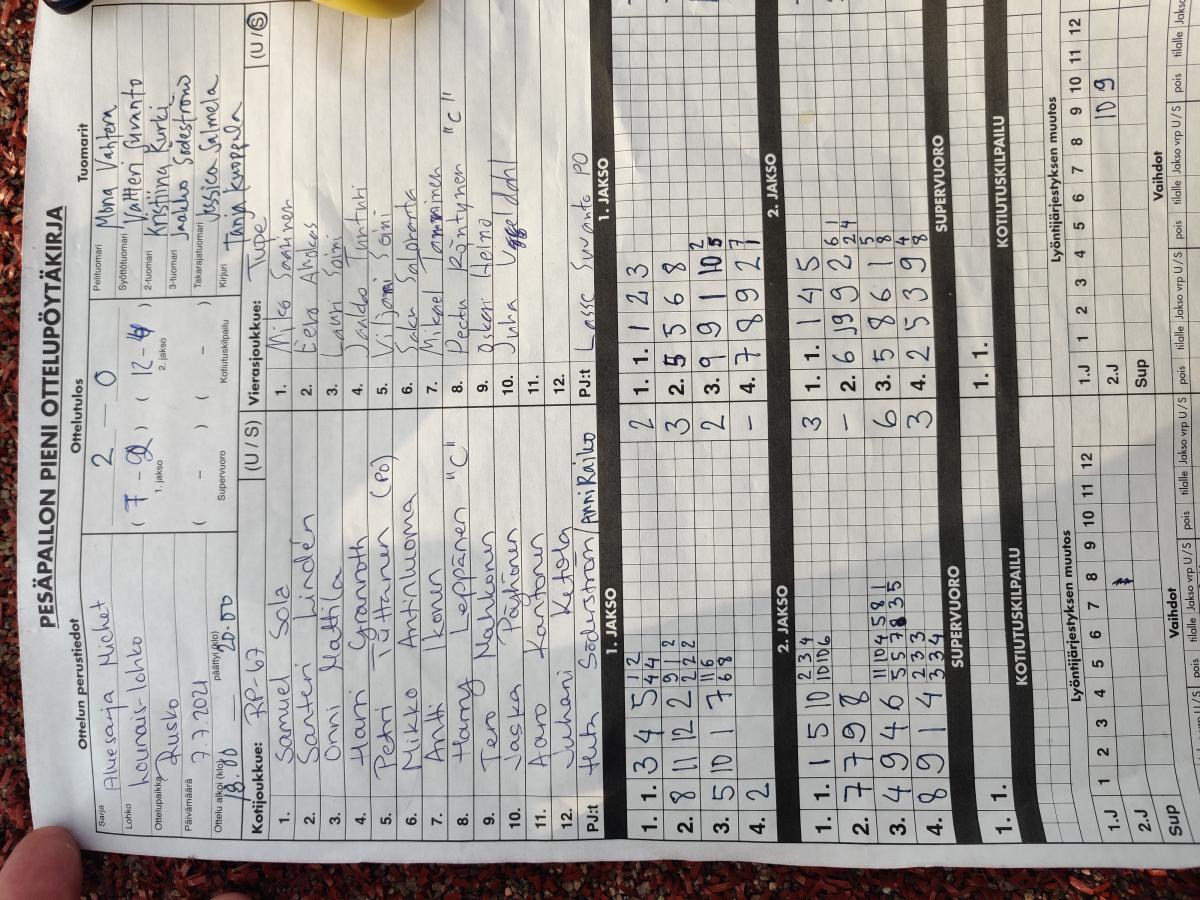 PESÄPALLON PIENI OTTELUPÖYTÄKIRJA
Ottelun perustiedot
Sarja Aluesarja Miehet
Lohko Lounais-lohko
Ottelupaikka Rusko
Päivämäärä 7.7.2021
Ottelu alkoi (klo) 18.00 päättyi (klo) 20.00
Ottelutulos
2 – 0
( 7 - ) ( 12 - )
1. jakso 2. jakso
( – ) ( – )
Supervuoro Kotiutuskilpailu
Tuomarit
Pelituomari Mona Vahtera
Syöttötuomari Valtteri Suvanto
2-tuomari Kristiina Kurki
3-tuomari Jaakko Söderström
Takarajatuomari Jessica Salmela
Kirjuri Tanja Kuoppala
Kotijoukkue: RP-67 (U / S)
1. Samuel Sola
2. Santeri Lindén
3. Onni Mattila
4. Harri Granroth
5. Petri Iittanen (PO)
6. Mikko Antinluoma
7. Antti Ikonen
8. Harry Leppänen "C"
9. Tero Mahkonen
10. Jaska Pöyhönen
11. Aaro Kantonen
12. Juhani Ketola
PJ:t Juta Söderström / Anni Raiko
Vierasjoukkue: TuPe (U / S)
1. Mika Saarinen
2. Eero Ahokas
3. Lauri Soini
4. Jaakko Tunturi
5. Viljami Soini
6. Saku Saloranta
7. Mikael Tamminen
8. Peetu Räntynen "C"
9. Oskari Heino
10. Juha
11.
12.
PJ:t Lasse Suvanto PO
1. JAKSO
1. 1. 3 4 5 1 2 4 4 2
2. 8 11 12 2 9 1 2 2 2 2 3
3. 5 10 1 7 11 6 6 8 2
4. 2 –
1. JAKSO
1. 1. 1 2 3
2. 5 5 6 8
3. 9 9 1 10 2 5
4. 7 8 9 2 7 1
2. JAKSO
1. 1. 1 5 10 2 3 4 10 10 6 3
2. 7 7 9 8 –
3. 4 9 4 6 11 10 4 5 8 1 5 5 7 8 3 5 6
4. 8 9 1 4 2 3 3 3 3 4 3
2. JAKSO
1. 1. 1 4 5
2. 6 10 9 2 6 1 2 4
3. 5 8 6 1 5 8
4. 2 5 3 9 4 8
SUPERVUORO
1. 1.
SUPERVUORO
1. 1.
KOTIUTUSKILPAILU
KOTIUTUSKILPAILU
Lyöntijärjestyksen muutos
1 2 3 4 5 6 7 8 9 10 11 12
1.J
2.J
Sup
Lyöntijärjestyksen muutos
1 2 3 4 5 6 7 8 9 10 11 12
1.J
2.J 10 9
Sup
Vaihdot
pois tilalle Jakso vrp U / S pois tilalle Jakso vrp U / S
Vaihdot
pois tilalle Jakso vrp U / S pois tilalle Jakso vrp U / S pois tilalle